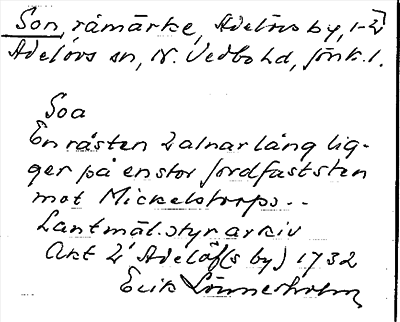 Son, råmärke, Adelövs by, 1-2
Adelövs sn, N. Vedbo hd, Jönk. l.
Soa
En råsten 2 alnar lång lig-
ger på en stor jordfast sten
mot Mickelstorps..
Lantmät.styr arkiv
Akt 2 Adelöf(s by) 1732
Erik Linnerholm